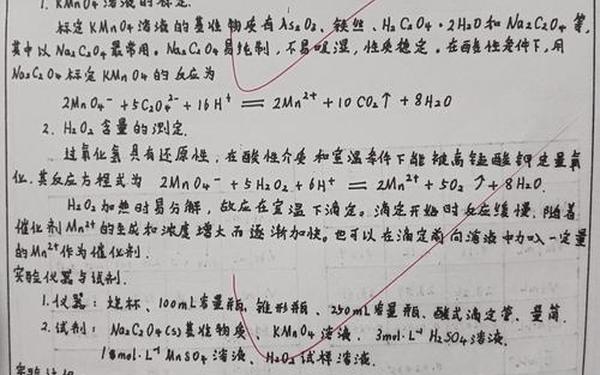 1. KMnO4溶液的标定.
标定KMnO4溶液的基准物质有As2O3、铁丝、H2C2O4·2H2O和Na2C2O4等,
其中以Na2C2O4最常用。Na2C2O4易纯制,不易吸湿,性质稳定。在酸性条件下,用
Na2C2O4标定KMnO4的反应为
2MnO4⁻ + 5C2O4²⁻ + 16H⁺ == 2Mn²⁺ + 10CO2↑ + 8H2O
2. H2O2含量的测定.
过氧化氢具有还原性,在酸性介质和室温条件下能被高锰酸钾定量氧
化.其反应方程式为 2MnO4⁻ + 5H2O2 + 6H⁺ == 2Mn²⁺ + 5O2↑ + 8H2O.
H2O2加热时易分解,故应在室温下滴定。滴定开始时反应缓慢,随着
催化剂Mn²⁺的生成和浓度增大而逐渐加快。也可以在滴定前向溶液中加入一定量
的Mn²⁺作为催化剂.
实验仪器与试剂.
1.仪器:烧杯、100mL容量瓶、锥形瓶、250mL容量瓶、酸式滴定管、量筒.
2.试剂:Na2C2O4(s)基准物质、KMnO4溶液、3mol·L⁻¹H2SO4溶液、
1mol·L⁻¹MnSO4溶液、H2O2试样溶液.